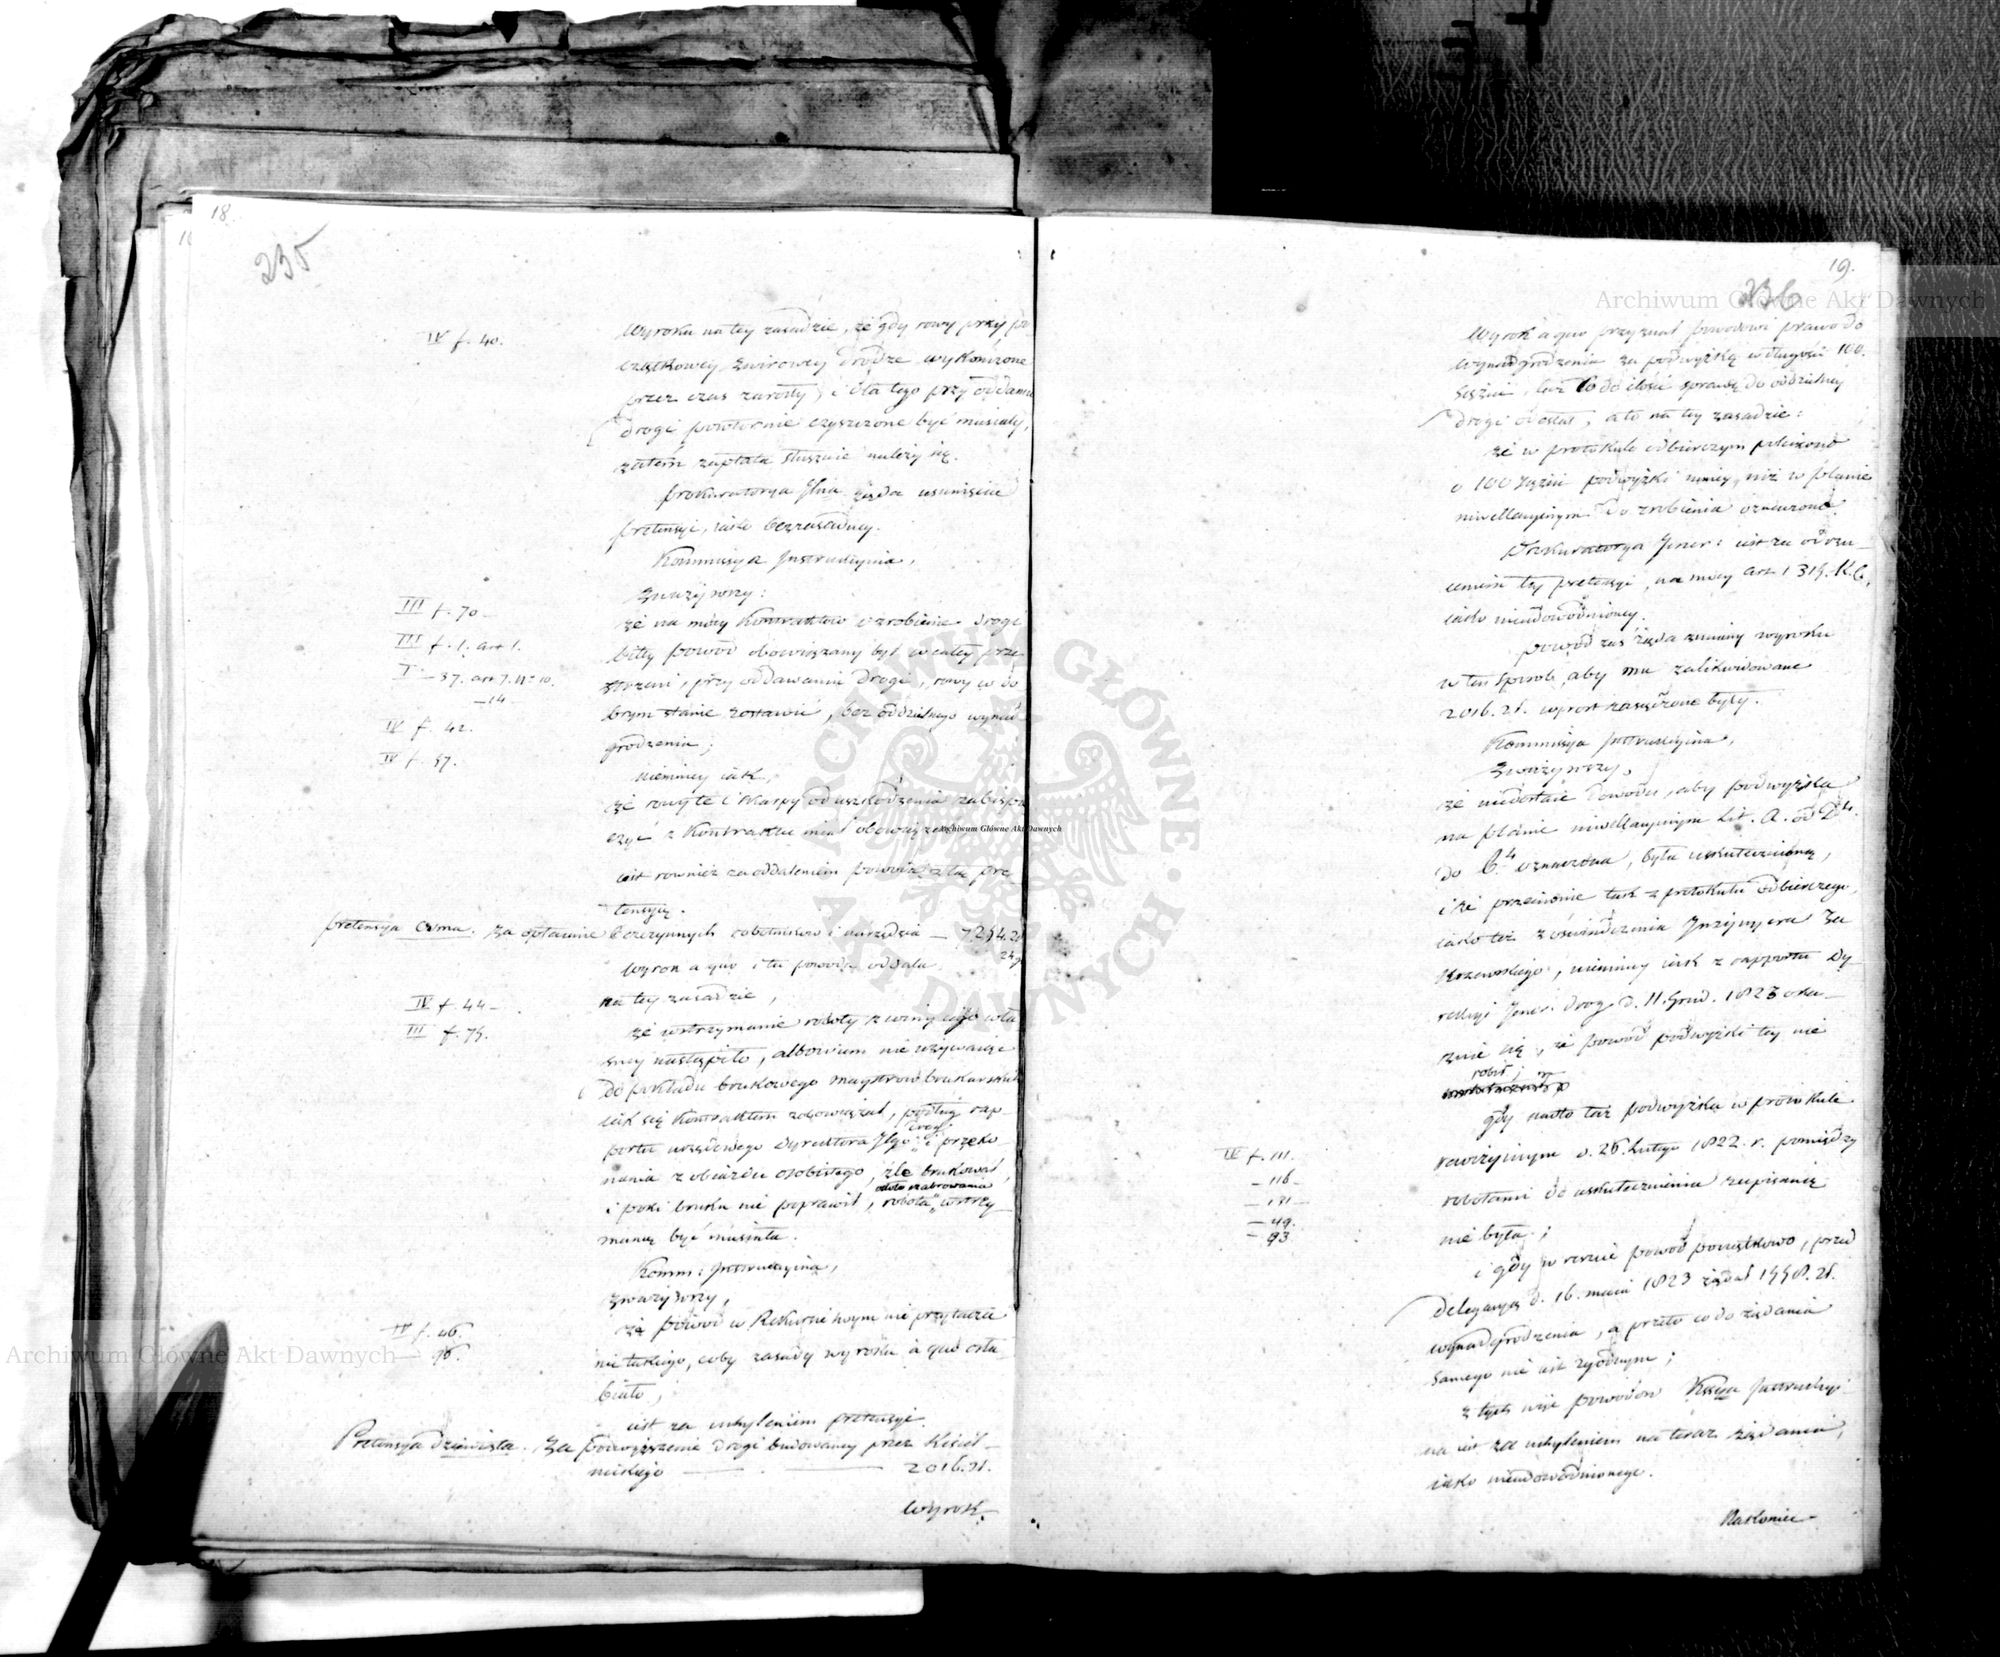 18.
235
IV f. 40.
Wyroku na tey zasadzie, że gdy rowy przy po
czątkowey żwirowey drodze wykonczone
przez czas zarosły i dla tego przy oddaniu
drogi powtornie czyszczone być musiały,
zatém zapłata słusznie należy się.
Prokuratorya Jlna żąda usunięcia
pretensyi, iako bezzasadney.
Kommissya Instrukcyina,
zważywszy:
III f. 70.
że na mocy Kontraktow o zrobienie drogi
III f. 1. art 1.
bitey powod obowiązany był w całey prze
V — 37. art 7. N° 10.
strzeni, przy oddawaniu drogi, rowy w do
— 14 —
brym stanie zostawić, bez oddzielnego wynad
IV f. 42.
grodzenia;
IV f. 57.
niemniey iak,
że rowy te i skarpy od uszkodzenia zabespie
czyć z Kontraktu miał obowiązek
iest rownież za oddaleniem powoda z tą pre
tensyą.
Pretensya osma. za opłacanie bezczynnych robotnikow i narzędzia — 7254.20
Wyrok a quo i tu powoda oddala
na tey zasadzie,
IV f. 44 —
III f. 75.
że wstrzymanie roboty z winy iego wła
sney nastąpiło, albowiem nie używaiąc
do pokładu brukowego maystrow brukarskich
iak się kontraktem zobowiązał, podług rap-
portu urzędowego Dyrektora Jlgo drog: i przeko
nania z obiazdu osobistego, źle brukował,
i poki bruku nie poprawił, robota około szabrowania wstrzy-
maną być musiała.
Komm: Instrukcyina,
zważywszy,
że powod w Rekursie swym nie przytacza
IV f. 46.
— 76.
nic takiego, coby zasady wyroku à quo osła
biało;
iest za uchyleniem pretensyi.
Pretensya dziewiąta. Za podwyższenie drogi budowaney przez Kisiel-
nickiego — . — 2016.21.
Wyrok
19.
236
Wyrok a quo przyznał powodowi prawo do
wynadgrodzenia za podwyżkę w długości 100.
sążni, lecz co do ilości sprawę do oddzielney
drogi odesłał, a to na tey zasadzie:
że w protokule odbiorczym policzono
o 100 sążni podwyżki mniey, niż w planie
niwellacyinym do zrobienia oznaczono.
Prokuratorya Jener: iest za odrzu-
ceniem tey pretensyi, na mocy art 1315. K.C.,
iako nieudowodnioney.
powod zaś żąda zmiany wyroku
w ten sposob, aby mu zalikwidowane
2016. 21. wprost zasądzone były.
Kommissya Instrukcyina,
zważywszy,
że niedostaie dowodu, aby podwyżka
na planie niwellacyinym Lit. A. od D⁴.
do C.⁴ oznaczona, była uskutecznioną,
i że przeciwnie tak z protokułu odbiorczego,
iako też z oświadczenia Inżyniera Za
krzewskiego, niemniey iak z rapportu Dy-
rekcyi Jener. drog d. 11. Grud. 1823 oka-
zuie się, że powod podwyżki tey nie
robił;
gdy nadto taż podwyżka w protokule
IV f. 111.
rewizyinym d. 26. Lutego 1822. r. pomiędzy
— 116 —
— 131 —
robotami do uskutecznienia zapisaną
— 49.
— 93.
nie była;
i gdy w reszcie powod początkowo, przed
Delegacyą d. 16. maia 1823 żądał 1558. 21.
wynadgrodzenia, a przeto co do żądania
samego nie iest zgodnym;
z tych więc powodow Kssya Instrukcyi
na iest za uchyleniem na teraz żądania,
iako nieudowodnionego.